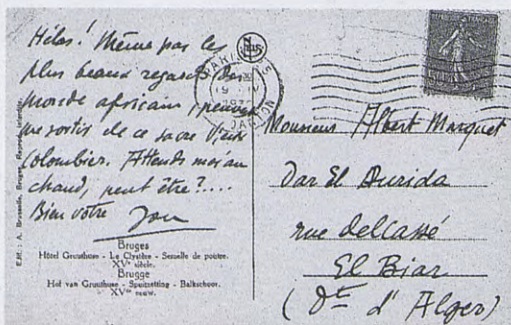 Hélas! Même par les
plus beaux regards du
monde africain, peuvent
me sortir de ce sacré Vieux
Colombier. Attends moi au
chaud, peut être?....
Bien votre
Bruges
Hôtel Gruuthuse - Le Clystère - Semelle de poutre.
XVe siècle.
Brugge
Hof van Gruuthuse - Spuitzetting - Balkschoor.
XVde eeuw.
Nels
PARIS
19
Monsieur Albert Marquet
Dar El Aurida
rue delCassé
El Biar
(Dt d'Alger)